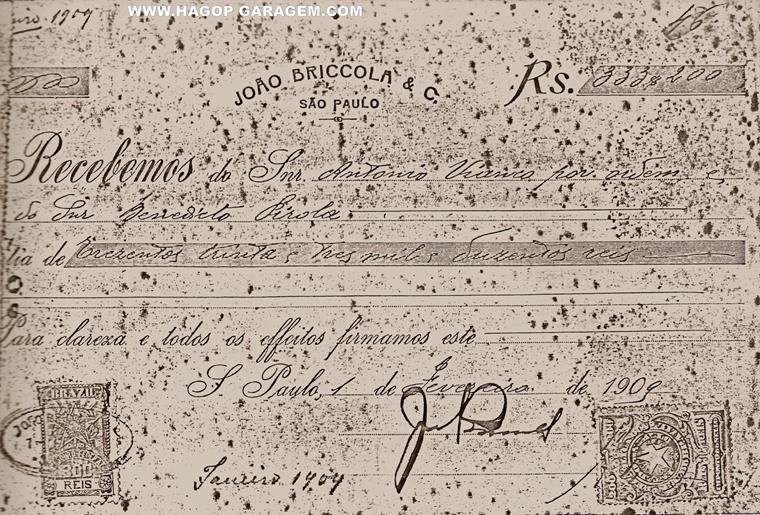 WWW.HAGOP.GARAGEM.COM
JOÃO BRICCOLA & C.
SÃO PAULO
Rs. 333$200
Recebemos do Snr. Antonio Vianna por ordem e
do Snr Benedicto Pirola
tia de Trezentos trinta e tres mil e duzentos reis
Para clareza e todos os effeitos firmamos este
S. Paulo, 1 de Fevereiro de 1909
300
REIS
Janeiro 1909